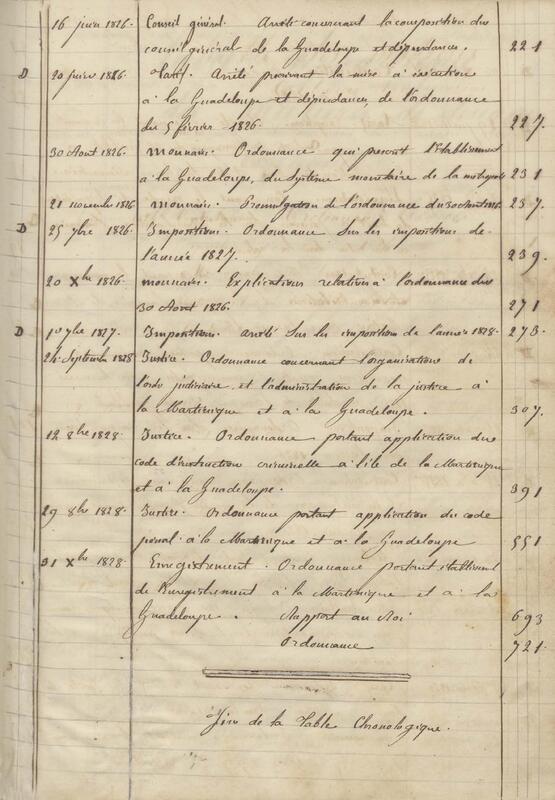 16 juin 1826. Conseil général. Arrêté concernant la composition du
conseil général de la Guadeloupe et dépendances. 221
D 20 juin 1826 Arrêté prescrivant la mise à exécution
à la Guadeloupe et dépendances, de l'ordonnance
du 5 février 1826. 227.
30 Aout 1826 monnaies. Ordonnance qui prescrit l'établissement
à la Guadeloupe, du Système monétaire de la métropole 231
21 novembre 1826 monnaies. Promulgation de l'ordonnance du 30 aout 1826. 237.
D 25 9bre 1826 Impositions. Ordonnance Sur les impositions de
l'année 1827. 239.
20 Xbre 1826 monnaies. Explications relatives à l'ordonnance du
30 Aout 1826. 271
D 1827 Impositions. Arrêté Sur les impositions de l'année 1828. 273.
24 Septembre 1828 Justice. Ordonnance concernant l'organisation de
l'ordre judiciaire et l'administration de la justice à
la Martinique et à la Guadeloupe. 307.
12 8bre 1828. Justice. Ordonnance portant application du
code d'instruction criminelle à l'île de la Martinique
et à la Guadeloupe. 391
29 8bre 1828. Justice. Ordonnance portant application du code
pénal à la Martinique et à la Guadeloupe 551
31 Xbre 1828 Enregistrement. Ordonnance portant établissement
de l'enregistrement à la Martinique et à la
Guadeloupe. Rapport au Roi 693
Ordonnance 721.
Fin de la Table Chronologique.